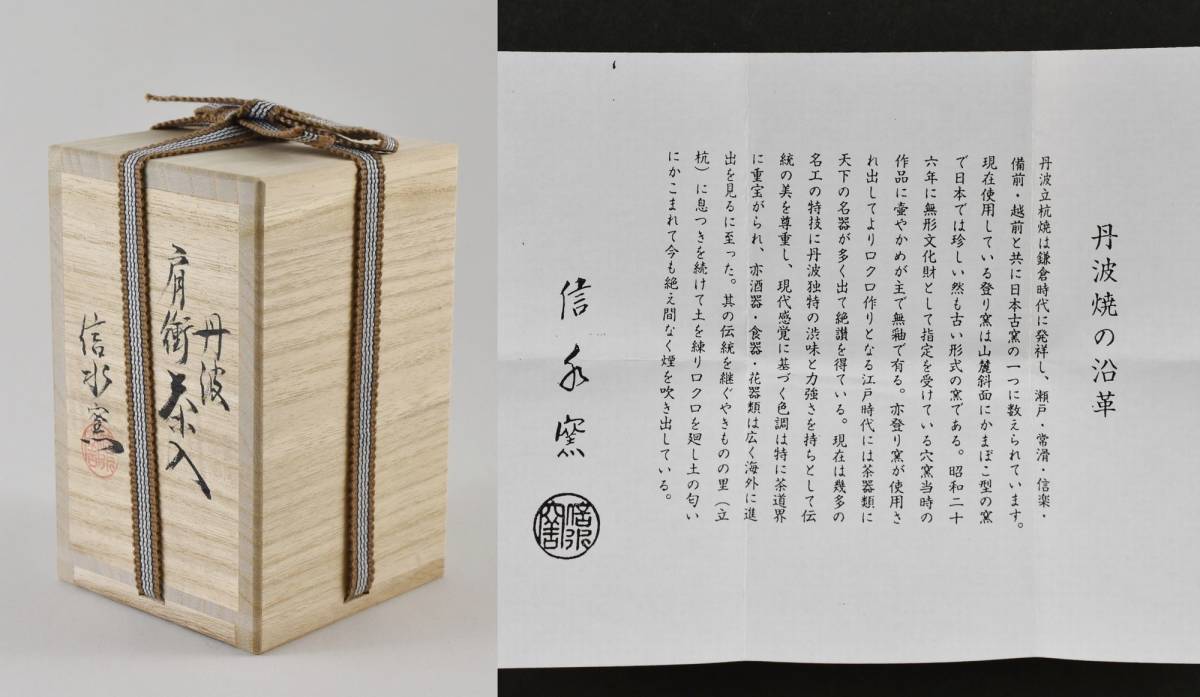 丹波
肩衝茶入
信水窯
丹波焼の沿革
丹波立杭焼は鎌倉時代に発祥し、瀬戸・常滑・信楽・
備前・越前と共に日本古窯の一つに数えられています。
現在使用している登り窯は山麓斜面にかまぼこ型の窯
で日本では珍しい然も古い形式の窯である。昭和二十
六年に無形文化財として指定を受けている穴窯当時の
作品に壷やかめが主で無釉で有る。亦登り窯が使用さ
れ出してよりロクロ作りとなる江戸時代には茶器類に
天下の名器が多く出て絶讃を得ている。現在は幾多の
名工の特技に丹波独特の渋味と力強さを持ちとして伝
統の美を尊重し、現代感覚に基づく色調は特に茶道界
に重宝がられ、亦酒器・食器・花器類は広く海外に進
出を見るに至った。其の伝統を継ぐやきものの里（立
杭）に息つきを続けて土を練りロクロを廻し土の匂い
にかこまれて今も絶え間なく煙を吹き出している。
信水窯